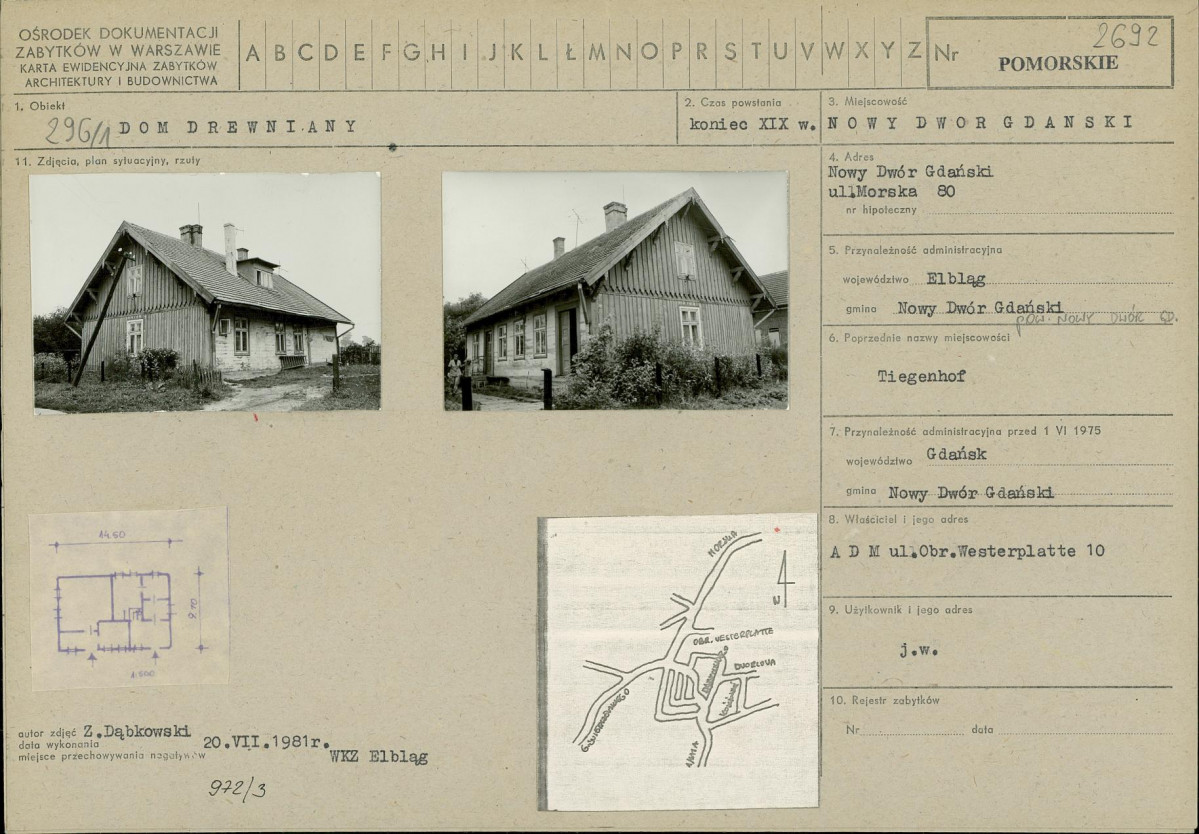 OŚRODEK DOKUMENTACJI
ZABYTKÓW W WARSZAWIE
KARTA EWIDENCYJNA ZABYTKÓW
ARCHITEKTURY I BUDOWNICTWA
A B C D E F G H I J K L Ł M N O P R S T U V W X Y Z
Nr 2692
POMORSKIE
1. Obiekt
296/1 DOM DREWNIANY
2. Czas powstania
koniec XIX w.
3. Miejscowość
NOWY DWOR GDANSKI
11. Zdjęcia, plan sytuacyjny, rzuty
4. Adres
Nowy Dwór Gdański
ul.Morska 80
nr hipoteczny
5. Przynależność administracyjna
województwo Elbląg
gmina Nowy Dwór Gdański
POW. NOWY DWÓR GD.
6. Poprzednie nazwy miejscowości
Tiegenhof
7. Przynależność administracyjna przed 1 VI 1975
województwo Gdańsk
gmina Nowy Dwór Gdański
8. Właściciel i jego adres
A D M ul.Obr.Westerplatte 10
9. Użytkownik i jego adres
j.w.
10. Rejestr zabytków
Nr data
14.60
8.10
1:500
MORSKA
N
OBR. WESTERPLATTE
DWORCOWA
autor zdjęć Z.Dąbkowski
data wykonania 20.VII.1981r.
miejsce przechowywania negatywów WKZ Elbląg
972/3